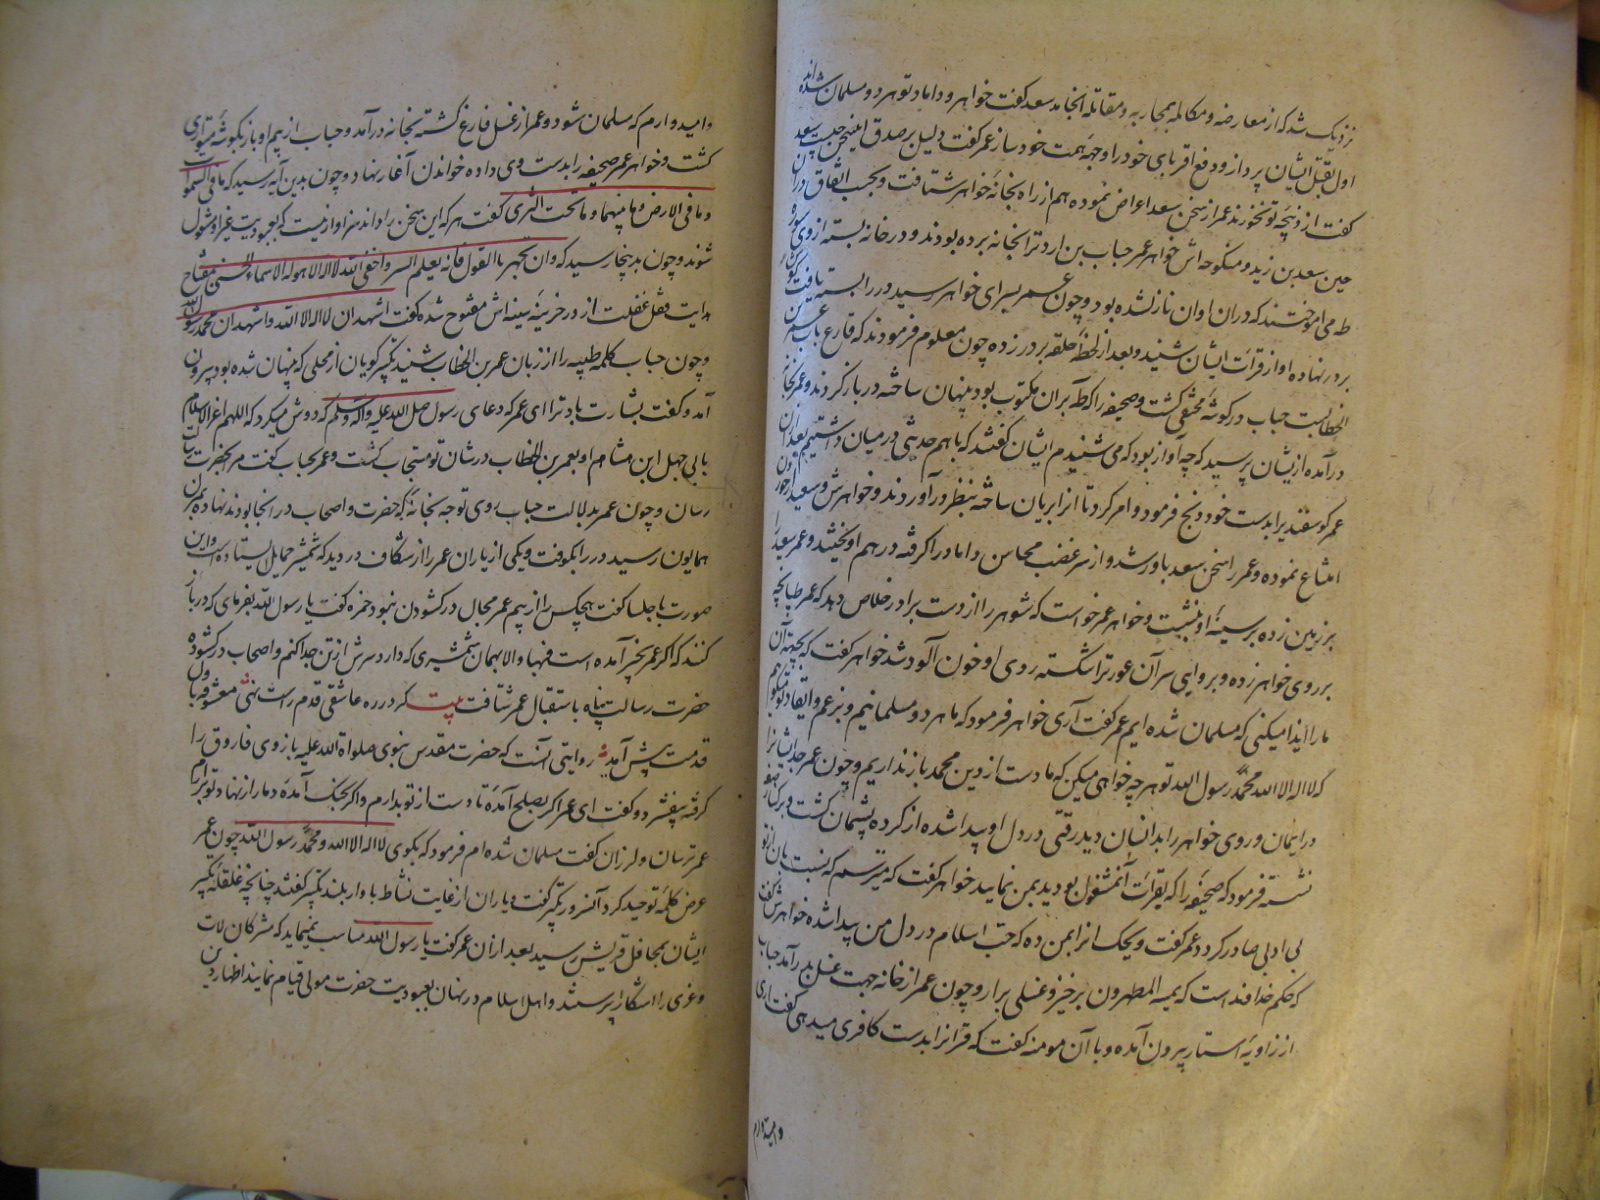 نزدیک شد که از معارضه و مکالمه بمحاربه و مقاتله انجامد سعد گفت خواهر و داماد تو هر دو مسلمان شده‌اند
اول بقتل ایشان پرداز و دفع اقربای خود را وجهه همت خود ساز عمر گفت دلیل بر صدق این سخن چیست سعد
گفت از ذبیحه تو نخورند عمر از سخن سعد اعراض نموده هم از راه بخانه خواهر شتافت و بحسب اتفاق دران
حین سعید بن زید و منکوحه‌اش خواهر عمر خباب بن ارت را بخانه برده بودند و در خانه بسته از وی سوره
طه می‌آموختند که دران اوان نازل شده بود و چون عمر بسرای خواهر رسید در را بسته یافت گوش
بر در نهاده آواز قرائت ایشان شنید و بعد از لحظه حلقه بر در زده چون معلوم فرمودند که قارع باب عمر بن
الخطابست خباب در گوشه مختفی گشت و صحیفه را که طه بران مکتوب بود پنهان ساخته در باز کردند و عمر بخانه
درآمده از ایشان پرسید که چه آواز بود که می‌شنیدم ایشان گفتند که با هم حدیثی در میان داشتیم بعد ازان
عمر گوسفندیرا بدست خود ذبح فرمود و امر کرد تا انرا بریان ساخته بنظر درآوردند و خواهرش و سعید از خوردن
امتناع نموده و عمر را سخن سعد باور شد و از سر غضب محاسن داماد را گرفته در هم آویختند و عمر سعید را
بر زمین زده بر سینه او بنشست و خواهر عمر خواست که شوهر را از دست برادر خلاص دهد که عمر طپانچه
بر روی خواهر زده و بروایتی سر آن عورت را شکسته روی او خون آلود شد خواهر گفت که بجهة آن
مارا ایذا میکنی که مسلمان شده‌ایم عمر گفت آری خواهر فرمود که ما هر دو مسلمانیم و بزعم و اعتقاد تو میگوییم
که لا اله الا الله محمد رسول الله تو هر چه خواهی میکن که ما دست از دین محمد باز نداریم و چون عمر جد ایشانرا
در ایمان و روی خواهر را بدانسان دید رقتی در دل او پیدا شده از کرده پشیمان گشت و بر کنار صفه
نشسته فرمود که صحیفه را که بقرائت آن مشغول بودید بمن نمایید خواهر گفت که میترسم که نسبت بان از تو
بی ادبی صادر گردد عمر گفت ویحک انرا بمن ده که حب اسلام در دل من پیدا شده خواهرش گفت
که حکم خداوند است که لا یمسه الا المطهرون برخیز و غسلی برآر و چون عمر از خانه جهت غسل بدر آمد خباب
از زاویه استتار بیرون آمده و با آن مومنه گفت که قرانرا بدست کافری میدهی گفت آری
و امیدوارم
و امیدوارم که مسلمان شود و عمر از غسل فارغ گشته بخانه درآمد و خباب از بیم او باز بگوشه متواری
گشت و خواهر عمر صحیفه را بدست وی داده خواندن آغاز نهاد و چون بدین آیه رسید که ما فی السموات
و ما فی الارض و ما بینهما و ما تحت الثری گفت هر که این سخن را داند سزاوار نیست که بعبودیت غیر او مشغول
شوند و چون بدینجا رسید که و ان تجهر بالقول فانه یعلم السر و اخفی الله لا اله الا هو له الاسماء الحسنی مفتاح
هدایت قفل غفلت از در خزینه سینه‌اش مفتوح شده گفت اشهد ان لا اله الا الله و اشهد ان محمد رسول الله
و چون خباب کلمه طیبه را از زبان عمر بن الخطاب شنید تکبیر گویان از محلی که پنهان شده بود بیرون
آمد و گفت بشارت باد ترا ای عمر که دعای رسول صلی الله علیه و اله و سلم که دوش میکرد که اللهم اعز الاسلام
بابی جهل ابن هشام او بعمر بن الخطاب در شان تو مستجاب گشت و عمر بخباب گفت مرا بحضرت رسالت
رسان و چون عمر بدلالت خباب روی توجه بخانه که حضرت و اصحاب در انجا بودند نهاده بدرن
همایون رسید در را بکوفت و یکی از یاران عمر را از شکاف در دید که شمشیر حمایل ایستاده است و این
صورت با جلسا گفت هیچکس را از بیم عمر مجال در گشودن نبود حمزه گفت یا رسول الله بفرمای که در باز
کنند که اگر عمر بخیر آمده است فبها و الا بهمان شمشیری که دارد سرش از تن جدا کنم و اصحاب در گشوده
حضرت رسالت پناه باستقبال عمر شتافت بیت گر در ره عاشقی قدم راست نهی معشوقه باول
قدمت پیش آید روایتی آنست که حضرت مقدس نبوی صلواة الله علیه بازوی فاروق را
گرفته بیفشرد و گفت ای عمر اگر بصلح آمدۀ تا دست از تو بدارم و اگر بجنگ آمدۀ دمار از نهاد تو برآرم
عمر ترسان و لرزان گفت مسلمان شده‌ام فرمود که بگوی لا اله الا الله و محمد رسول الله چون عمر
عرض کلمه توحید کرد آنسرور تکبیر گفت و یاران از غایت نشاط باواز بلند تکبیر گفتند چنانچه غلغله تکبیر
ایشان بمحافل قریش رسید بعد ازان عمر گفت یا رسول الله مناسب نمینماید که مشرکان لات
و عزی را اشکارا پرستند و اهل اسلام در نهان بعبودیت حضرت مولی قیام نمایند اظهار دین